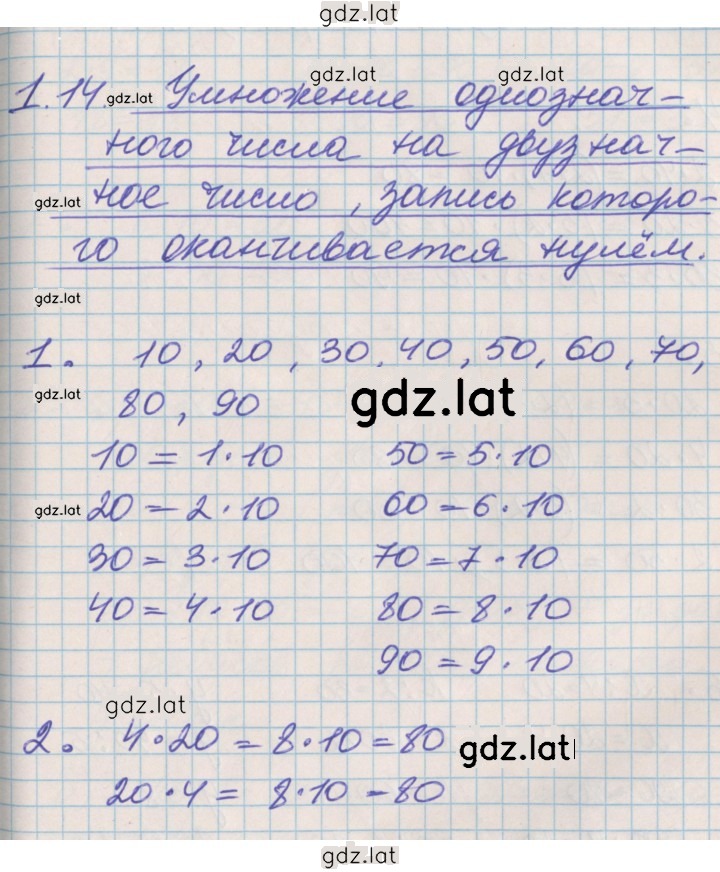 gdz.lat
gdz.lat gdz.lat
1.14. gdz.lat Умножение однознач-
ного числа на двузнач-
gdz.lat ное число, запись которо-
го оканчивается нулём.
gdz.lat
1. 10, 20, 30, 40, 50, 60, 70,
gdz.lat 80, 90 gdz.lat
10 = 1·10 50 = 5·10
gdz.lat 20 = 2·10 60 = 6·10
30 = 3·10 70 = 7·10
40 = 4·10 80 = 8·10
90 = 9·10
gdz.lat
2. 4·20 = 8·10 = 80 gdz.lat
20·4 = 8·10 = 80
gdz.lat